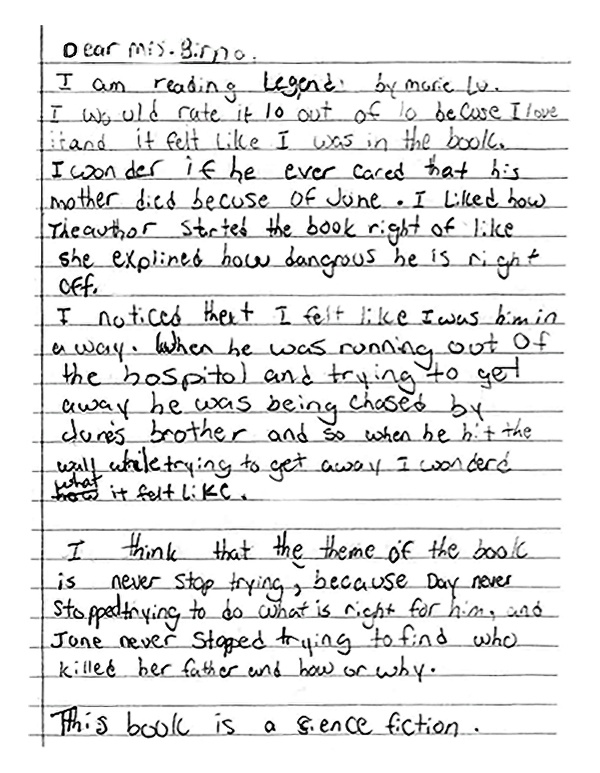 Dear mrs. Birno.
I am reading Legend. by marie Lu.
I would rate it 10 out of 10 becuse I love
itand it felt like I was in the book.
I wonder if he ever cared that his
mother died becuse of June. I liked how
The author started the book right of like
she explined how dangrous he is right
off.
I noticed that I felt like I was him in
a way. When he was running out of
the hospitol and trying to get
away he was being chased by
June's brother and so when he hit the
wall while trying to get away I wonderd
what
how it felt like.
I think that the theme of the book
is never stop trying, because Day never
stopped trying to do what is right for him, and
June never stoped trying to find who
killed her father and how or why.
This book is a sience fiction.